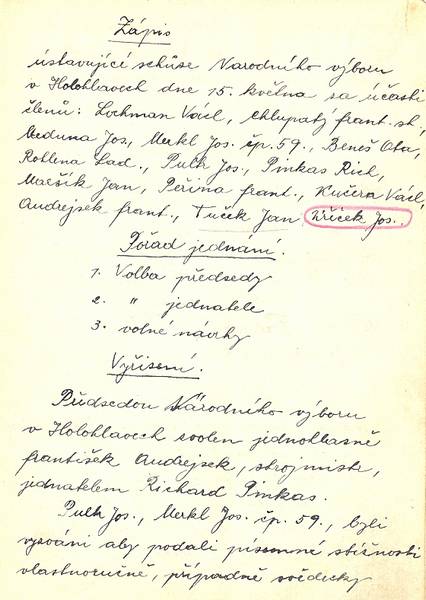 Zápis
ústavující schůse Národního výboru
v Holohlavech dne 15. května sa účasti
členů: Lochman Václ, Chlupatý frant. st.
Meduna Jos, Merkl Jos. čp. 59., Beneš Ota,
Rohlena Lad., Pulk Jos., Pinkas Rich,
Maršík Jan, Peřina frant., Kučera Václ,
Andrejsek frant., Tuček Jan Zříček Jos.
Pořad jednání.
1. Volba předsedy
2. " jednatele
3. volné návrhy
Vyřísení.
Předsedou Národního výboru
v Holohlavech svolen jednohlasně
františek Andrejsek, strojmistr,
jednatelem Richard Pinkas.
Pulk Jos., Merkl Jos. čp. 59., byli
vysváni aby podali písemné stížnosti
vlastnoručně, případně svědecky